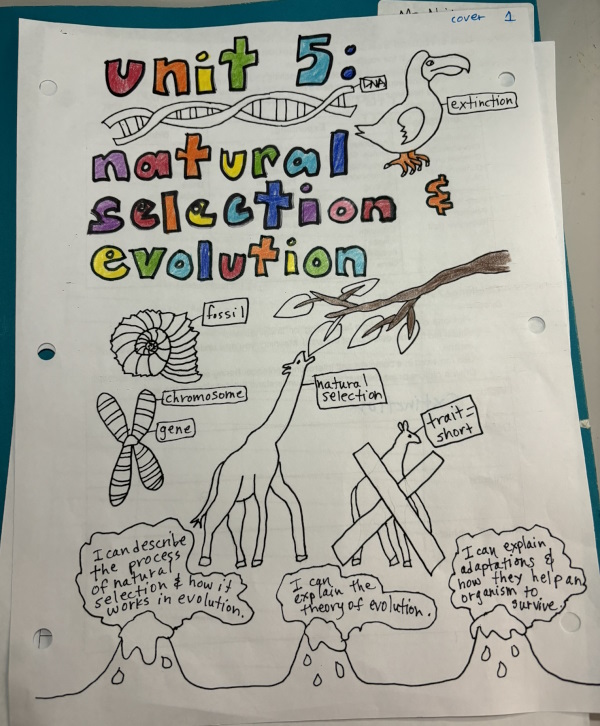 cover 1
unit 5:
DNA
extinction
natural
selection &
evolution
fossil
chromosome
gene
natural
selection
trait=
short
I can describe
the process
of natural
selection & how it
works in evolution.
I can
explain the
theory of evolution.
I can explain
adaptations &
how they help an
organism to
survive.